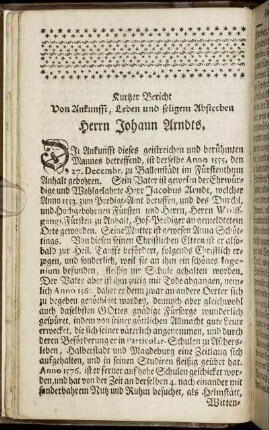 Kurtzer Bericht
Von Ankunfft, Leben und seligem Absterben
Herrn Johann Arndts.
Die Ankunfft dieses geistreichen und berühmten
Mannes betreffend, ist derselbe Anno 1555. den
27. Decembr. zu Ballenstädt im Fürstenthum
Anhalt gebohren. Sein Vater ist gewesen der Ehrwür-
dige und Wohlgelahrte Herr Jacobus Arndt, welcher
Anno 1553. zum Predigt-Amt beruffen, und des Durchl.
und Hochgebohrnen Fürsten und Herrn, Herrn Wolff-
gang, Fürsten zu Anhalt, Hof-Prediger an gemeldetem
Orte geworden. Seine Mutter ist gewesen Anna Schö-
tings. Von diesen seinen Christlichen Eltern ist er also-
bald zur Heil. Tauffe befördert, folgends Christlich er-
zogen, und sonderlich, weil sie an ihm ein schönes Inge-
nium befunden, fleißig zur Schule gehalten worden.
Der Vater aber ist ihm zeitig mit Tode abgangen, nem-
lich Anno 1565. daher er denn zwar an andere Oerter sich
zu begeben genöthiget worden, dennoch aber gleichwohl
auch daselbsten Gottes gnädige Fürsorge wunderlich
gespüret, indem von seiner göttlichen Allmacht gute Leute
erwecket, die sich seiner väterlich angenommen, und durch
deren Beförderung er in Particular-Schulen zu Aschers-
leben, Halberstadt und Magdeburg eine Zeitlang sich
aufgehalten, und in seinen Studiren fleißig geübet hat.
Anno 1576. ist er ferner auf hohe Schulen geschicket wor-
den, und hat von der Zeit an derselben 4. nach einander mit
sonderbahrem Nutz und Ruhm besuchet, als Helmstätt,
Witten-